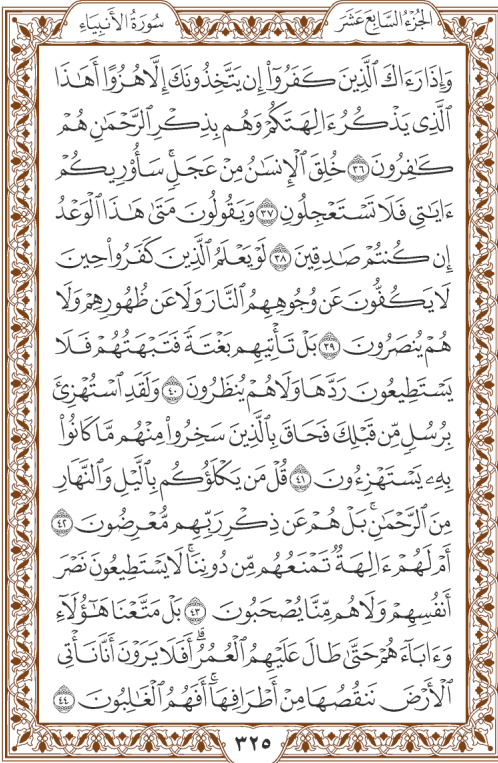 سُورَةُ الأَنبِيَاءِ الجُزْءُ السَّابِعَ عَشَرَ
وَإِذَا رَءَاكَ ٱلَّذِينَ كَفَرُوٓاْ إِن يَتَّخِذُونَكَ إِلَّا هُزُوًا أَهَٰذَا
ٱلَّذِى يَذْكُرُ ءَالِهَتَكُمْ وَهُم بِذِكْرِ ٱلرَّحْمَٰنِ هُمْ
كَٰفِرُونَ ٣٦ خُلِقَ ٱلْإِنسَٰنُ مِنْ عَجَلٍ ۚ سَأُوْرِيكُمْ
ءَايَٰتِى فَلَا تَسْتَعْجِلُونِ ٣٧ وَيَقُولُونَ مَتَىٰ هَٰذَا ٱلْوَعْدُ
إِن كُنتُمْ صَٰدِقِينَ ٣٨ لَوْ يَعْلَمُ ٱلَّذِينَ كَفَرُواْ حِينَ
لَا يَكُفُّونَ عَن وُجُوهِهِمُ ٱلنَّارَ وَلَا عَن ظُهُورِهِمْ وَلَا
هُمْ يُنصَرُونَ ٣٩ بَلْ تَأْتِيهِم بَغْتَةً فَتَبْهَتُهُمْ فَلَا
يَسْتَطِيعُونَ رَدَّهَا وَلَا هُمْ يُنظَرُونَ ٤٠ وَلَقَدِ ٱسْتُهْزِئَ
بِرُسُلٍ مِّن قَبْلِكَ فَحَاقَ بِٱلَّذِينَ سَخِرُواْ مِنْهُم مَّا كَانُواْ
بِهِۦ يَسْتَهْزِءُونَ ٤١ قُلْ مَن يَكْلَؤُكُم بِٱلَّيْلِ وَٱلنَّهَارِ
مِنَ ٱلرَّحْمَٰنِ ۚ بَلْ هُمْ عَن ذِكْرِ رَبِّهِم مُّعْرِضُونَ ٤٢
أَمْ لَهُمْ ءَالِهَةٌ تَمْنَعُهُم مِّن دُونِنَا ۚ لَا يَسْتَطِيعُونَ نَصْرَ
أَنفُسِهِمْ وَلَا هُم مِّنَّا يُصْحَبُونَ ٤٣ بَلْ مَتَّعْنَا هَٰٓؤُلَآءِ
وَءَابَآءَهُمْ حَتَّىٰ طَالَ عَلَيْهِمُ ٱلْعُمُرُ ۗ أَفَلَا يَرَوْنَ أَنَّا نَأْتِى
ٱلْأَرْضَ نَنقُصُهَا مِنْ أَطْرَافِهَآ ۚ أَفَهُمُ ٱلْغَٰلِبُونَ ٤٤
٣٢٥